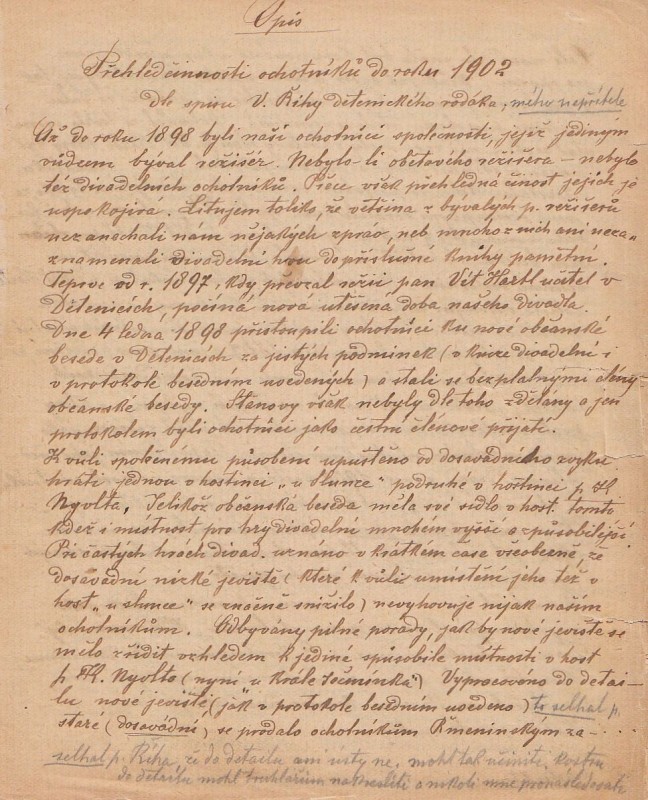 Opis
Přehled činnosti ochotníků do roku 1902
dle spisu V. Říhy dětenického rodáka, mého nepřítele
Až do roku 1898 byli naši ochotníci společností, jejíž jediným
vůdcem býval režisér. Nebylo-li obětavého režiséra – nebylo
též divadelních ochotníků. Přece však přehledná činost jejich je
uspokojivá. Litujem toliko, že většina z bývalých p. režisérů
nezanechali nám nějakých zpráv, neb mnoho z nich ani neza-
znamenali divadelní hru do příslušné knihy pamětní.
Teprve od r. 1897, kdy převzal režii pan Vít Hartl učitel v
Dětenicích, počíná nová utěšená doba našeho divadla.
Dne 4 ledna 1898 přistoupili ochotníci ku nové občanské
besedě v Dětenicích za jistých podmínek (v knize divadelní i
v protokole besedním uvedených) a stali se bezplatnými členy
občanské besedy. Stanovy však nebyly dle toho zdělány a jen
protokolem byli ochotníci jako čestní členové přijati.
K vůli společnému působení upuštěno od dosavádního zvyku
hráti jednou v hostinci „u slunce" podruhé v hostinci p. Fr.
Nyolta, Jelikož občanská beseda měla své sídlo v host. tomto
kdež i místnost pro hry divadelní mnohem vyšší a způsobilejší.
Při častých hrách divad. uznáno v krátkém čase všeobecně že
dosavádní nízké jeviště (které k vůli umístění jeho též v
host „u slunce" se značně snížilo) nevyhovuje nijak našim
ochotníkům. Odbývány pilné porady, jak by nové jeviště se
mělo zříditi vzhledem k jediné spůsobilé místnosti v host
p Fr. Nyolta (nyní u krále Ječmínka") Vypracováno do detai-
lu nové jeviště (jak v protokole besedním uvedeno) to selhal p.
staré (dosavádní) se prodalo ochotníkům Křmeninským za-....
selhal p. Říha, že do detailu ani ústy ne, mohl tak učiniti, kostru
do detailu mohl truhlářům nakresliti a nikoli mne pronásledovati